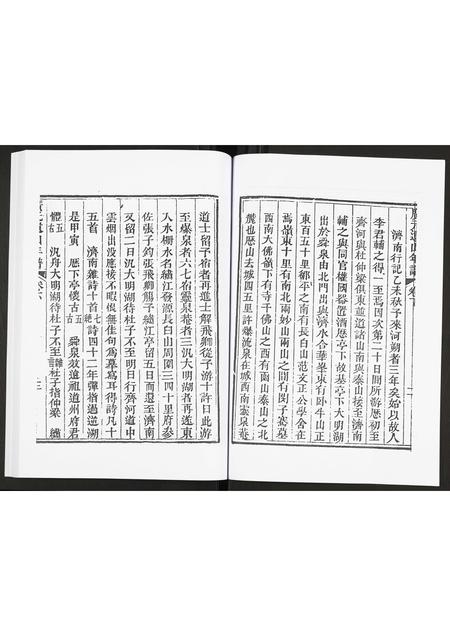 濟南行記乙未秋予來河朔者三年矣始以故人
李君輔之得一至焉因次第二十日間所游歷初至
齊河與杜仲梁俱東並道諸山南與泰山接至濟南
輔之與同官權國器置酒歷亭下故基亭下大明湖
出於舜泉由北門出與濟水合華峯東有臥牛山正
東百五十里鄒平之南有長白山范文正公學舍在
焉嶺東十里有南北兩妙山兩山之間有閔子騫墓
西南大佛嶺下有寺千佛山之西有函山泰山之北
麓也歷山去城四五里許爆流泉在城西南靈泉菴
道士留予宿者再進士解飛卿從予游十許日此游
至爆泉者六七宿靈泉菴者三汎大明湖者再遂東
入水柵水名繡江發源長白山周圍三四十里府參
佐張子鈞張飛卿觴予繡江亭留五日而還至濟南
又留二日汎大明湖待杜子不至明日行齊河道中
雲烟出沒應接不暇恨無佳句為摹寫耳得詩凡十
五首 濟南雜詩十首七絕詩四十二年彈指過邅湖
是甲寅 歷下亭懷古五古 舜泉效遠祖道州府君
體五古 汎舟大明湖待杜子不至雜言杜子指仲梁 繡